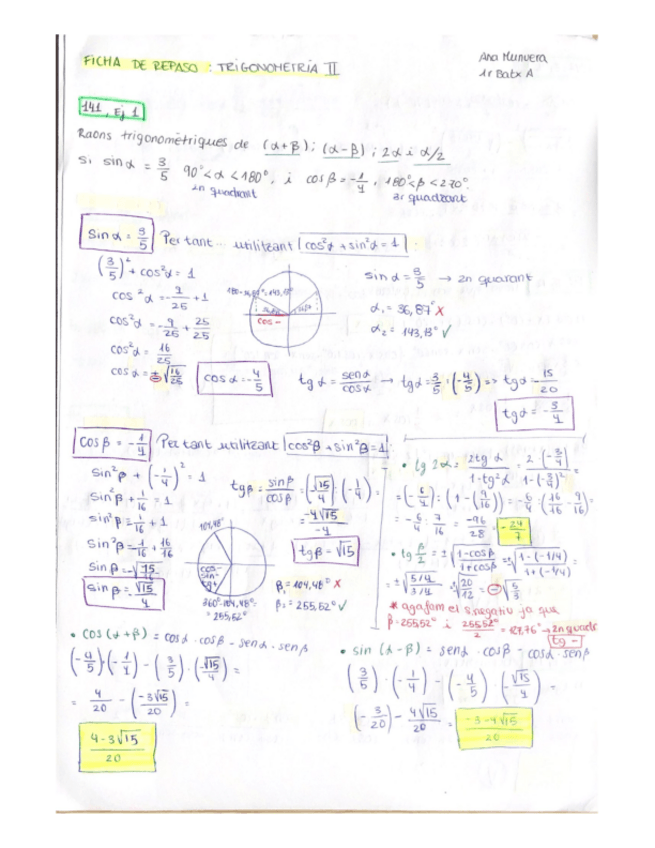 FICHA DE REPASO : TRIGONOMETRÍA II
Ana Munuera
1r Batx A
141, Ej 1
Raons trigonomètriques de (α+β); (α-β); 2α i α/2
Si sinα = 3/5 90°<α<180°, i cosβ = -1/4, 180°<β<270°.
2n quadrant 3r quadrant
sinα = 3/5 Per tant... utilitzant cos²α + sin²α = 1 :
(3/5)² + cos²α = 1
cos²α = -9/25 + 1
cos²α = -9/25 + 25/25
cos²α = 16/25
cosα = ±√(16/25) cosα = -4/5
180-36,87° = 143,13°
cos -
sinα = 3/5 → 2n quadrant
α₁ = 36,87° X
α₂ = 143,13° ✓
tgα = senα/cosα → tgα = 3/5 : (-4/5) => tgα = -15/20
tgα = -3/4
cosβ = -1/4 Per tant utilitzant cos²β + sin²β = 1
sin²β + (-1/4)² = 1
sin²β + 1/16 = 1
sin²β = -1/16 + 1
sin²β = -1/16 + 16/16
sinβ = -√(15/16)
sinβ = √15/4
tgβ = sinβ/cosβ = (√15/4) : (-1/4) =
= -4√15/-4
tgβ = √15
104,48°
cos-
sin-
tg+
360°-104,48° =
= 255,52°
β₁ = 104,48° X
β₂ = 255,52° ✓
• tg 2α = 2tgα/1-tg²α = 2·(-3/4)/1-(-3/4)² =
= (-6/4) : (1-(9/16)) = -6/4 : (16/16 - 9/16) =
= -6/4 : 7/16 = -96/28 = -24/7
• tg β/2 = ±√(1-cosβ/1+cosβ) = ±√(1-(-1/4)/1+(-1/4)) =
= ±√(5/4/3/4) = ±√(20/12) = -√(5/3)
* agafam el s.negatiu ja que
β = 255,52° i 255,52°/2 = 127,76° → 2n quadr
tg -
• cos(α+β) = cosα · cosβ - senα · senβ
(-4/5)·(-1/4) - (3/5)·(-√15/4) =
= 4/20 - (-3√15/20) =
4-3√15/20
• sin (α-β) = senα · cosβ - cosα · senβ
(3/5)·(-1/4) - (-4/5)·(-√15/4) =
(-3/20) - 4√15/20 = -3-4√15/20